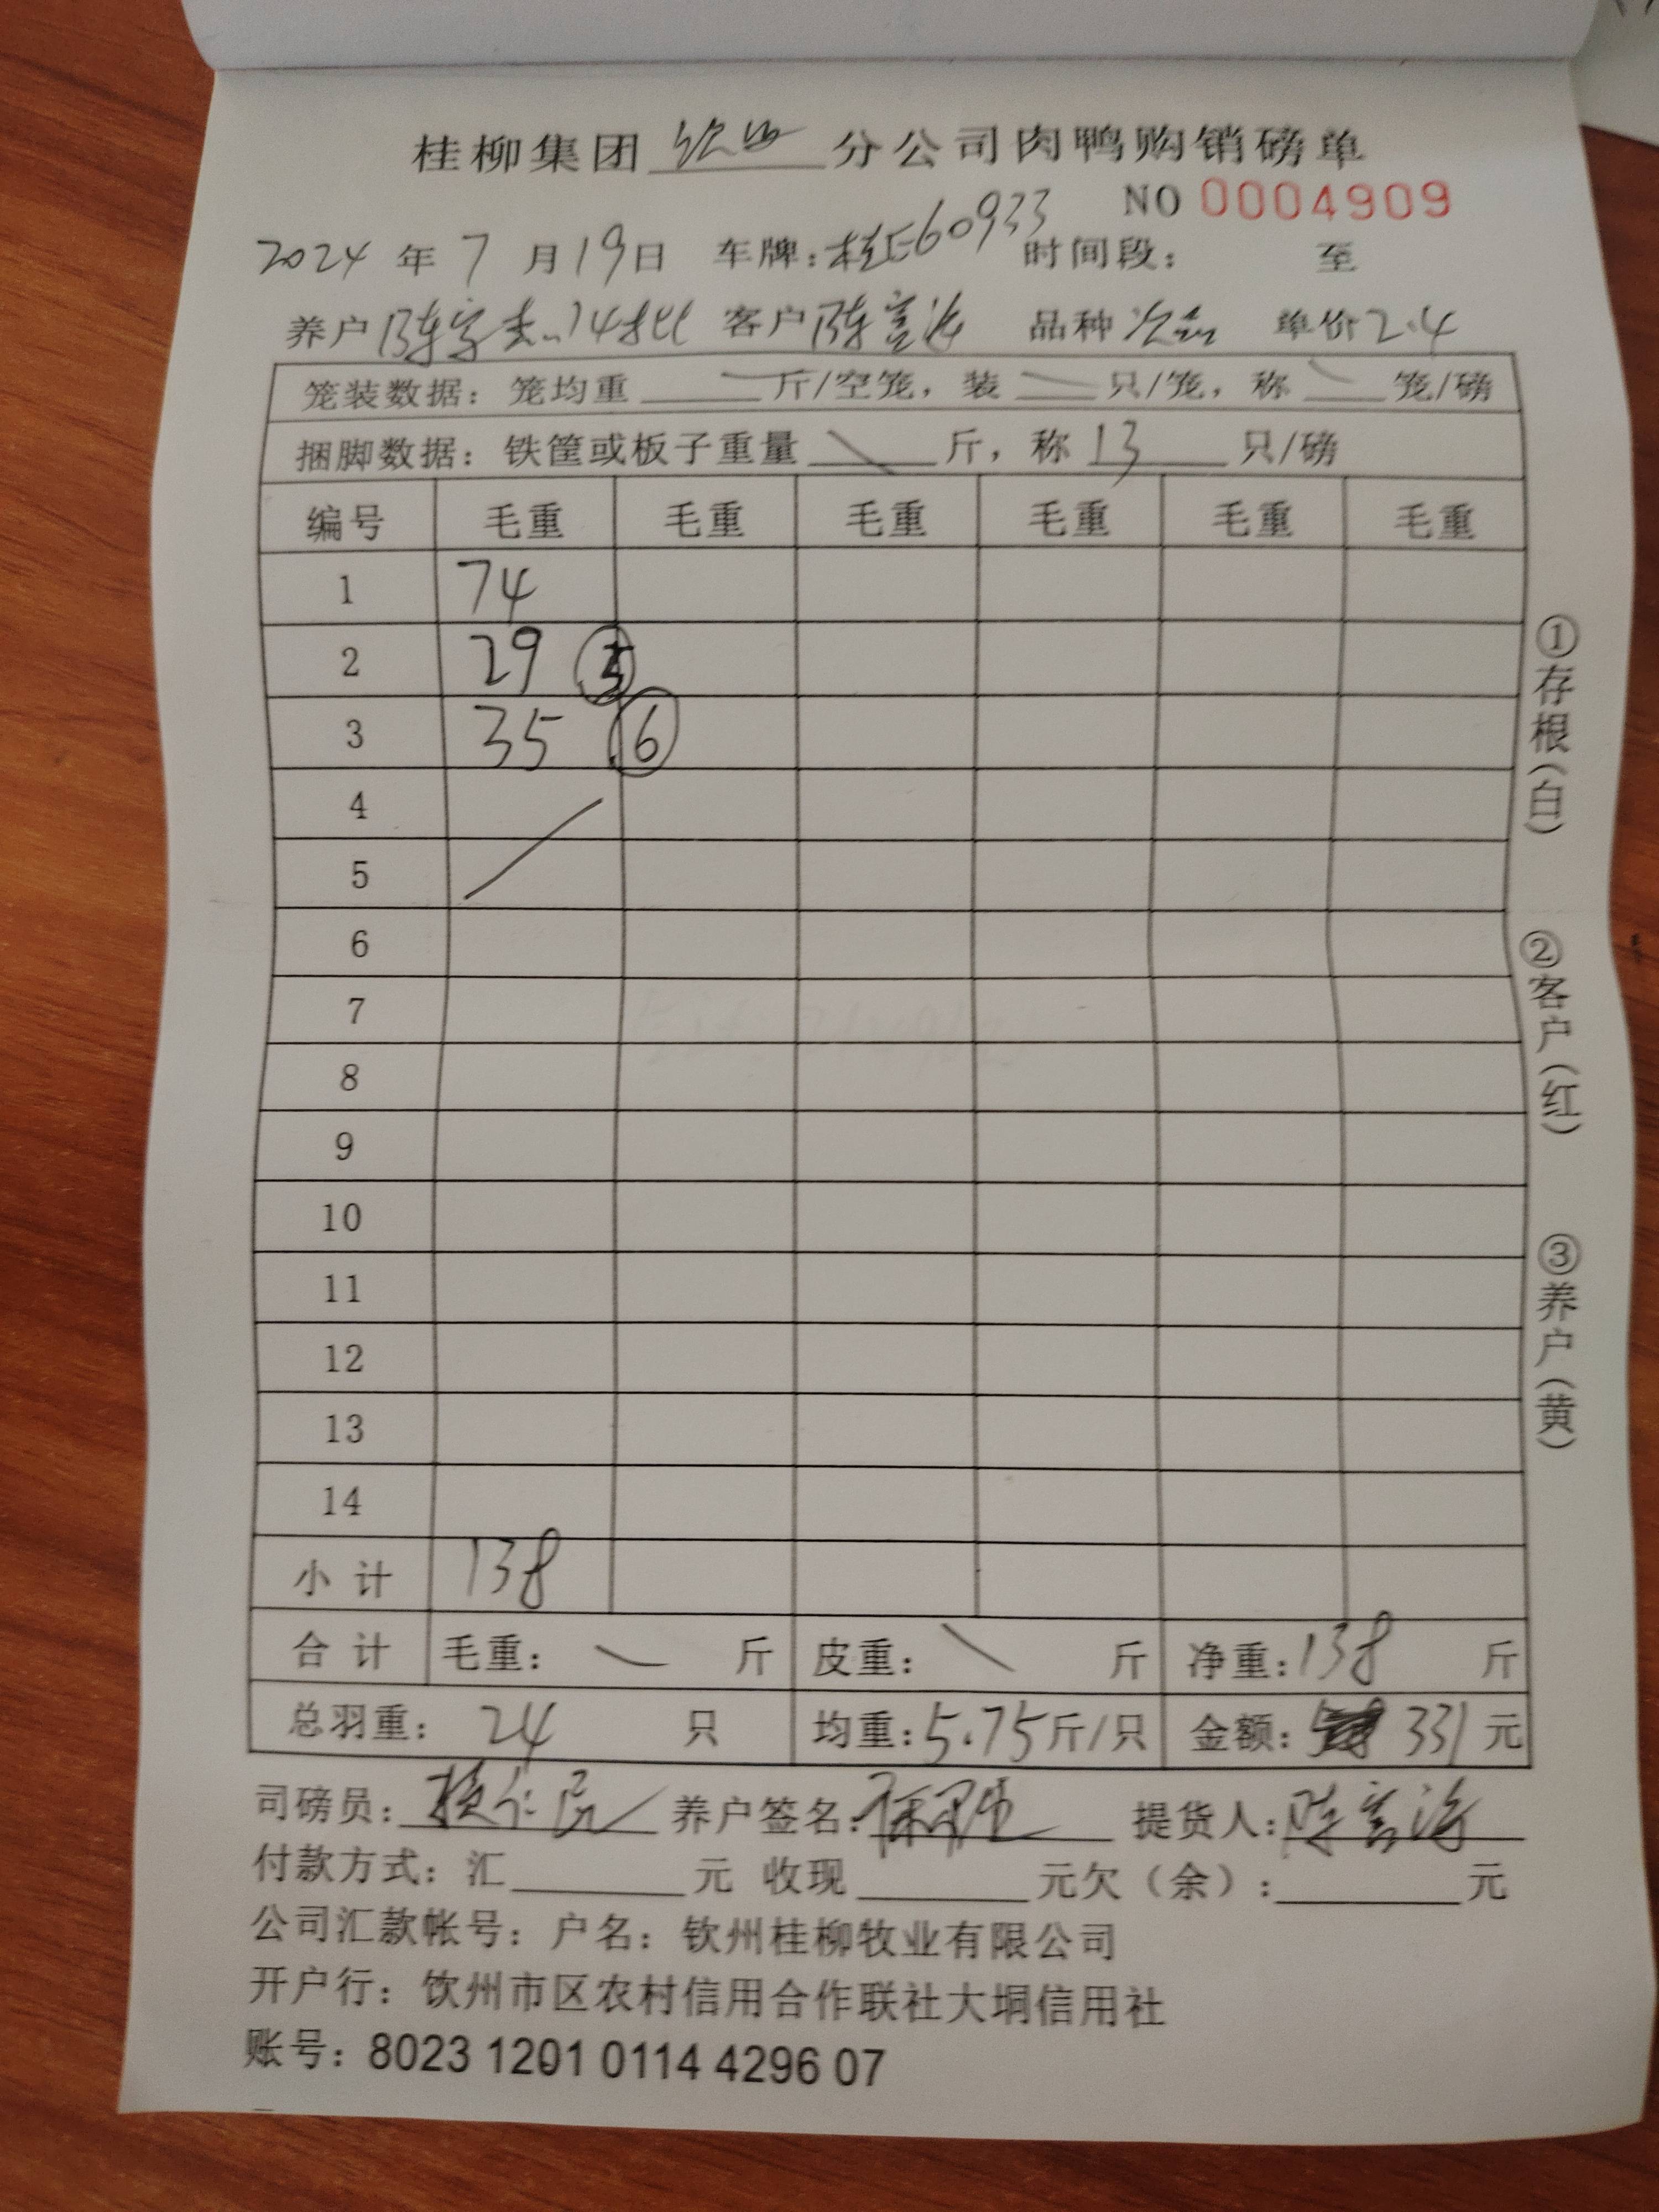 桂柳集团 钦州 分公司肉鸭购销磅单
NO 0004909
2024 年 7 月 19 日 车牌：桂E60933 时间段： 至
养户 陈 14批 客户 陈富海 品种 次品 单价 2.4
笼装数据：笼均重 斤/空笼，装 只/笼，称 笼/磅
捆脚数据：铁筐或板子重量 斤，称 13 只/磅
编号 毛重 毛重 毛重 毛重 毛重 毛重
1 74
2 29 5
3 35 6
4
5
6
7
8
9
10
11
12
13
14
小计 138
合计 毛重： 斤 皮重： 斤 净重：138 斤
总羽重：24 只 均重：5.75 斤/只 金额：331 元
司磅员： 养户签名： 提货人：陈富海
付款方式：汇 元 收现 元欠（余）： 元
公司汇款帐号：户名：钦州桂柳牧业有限公司
开户行：钦州市区农村信用合作联社大垌信用社
账号：8023 1201 0114 4296 07
①存根（白）
②客户（红）
③养户（黄）